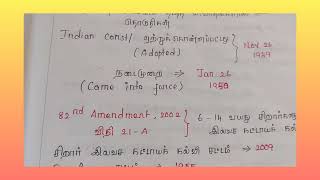 Indian Const/ ஏற்றுக்கொள்ளப்பட்டது
(Adopted)
Nov 26
1949
நடைமுறை ⇒ Jan 26
(Come into force) 1950
82nd Amendment, 2002
விதி 21-A
6-14 வயது
இலவச கட்டாயக் கல்வி
சிறார் இலவச கட்டாயக் கல்வி சட்டம் ⇒ 2009